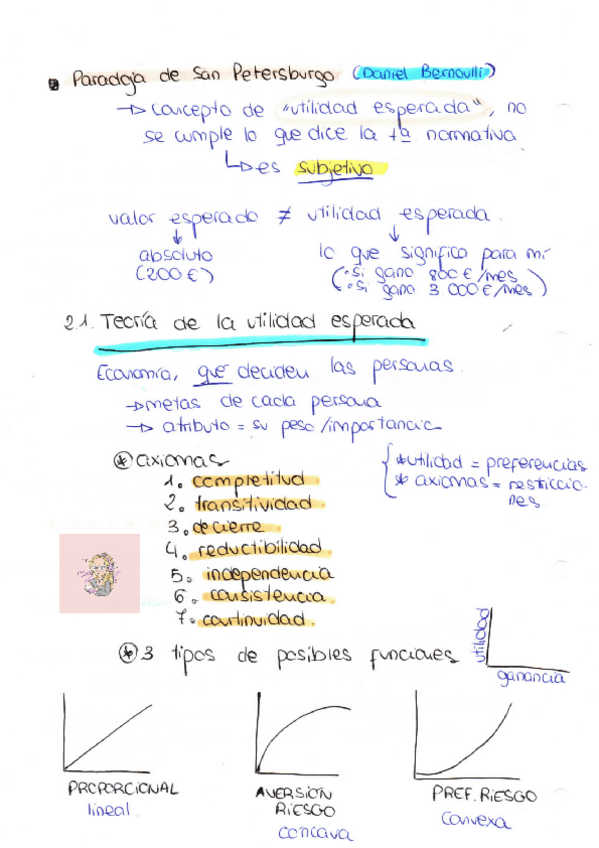 Paradoja de San Petersburgo (Daniel Bernoulli)
→ concepto de "utilidad esperada", no
se cumple lo que dice la tª normativa
↳ es subjetivo
valor esperado ≠ utilidad esperada.
absoluto
(200€)
lo que significa para mí
(· si gano 800€/mes
· si gano 3 000€/mes)
2.1. Teoría de la utilidad esperada
Economía, qué deciden las personas.
→ metas de cada persona
→ atributo = su peso/importancia
* axiomas
1. completitud
2. transitividad
3. de cierre
4. reductibilidad
5. independencia
6. consistencia
7. continuidad.
* utilidad = preferencias
* axiomas = restriccio-
nes.
* 3 tipos de posibles funciones
utilidad
ganancia
PROPORCIONAL
lineal
AVERSIÓN
RIESGO
concava
PREF. RIESGO
convexa